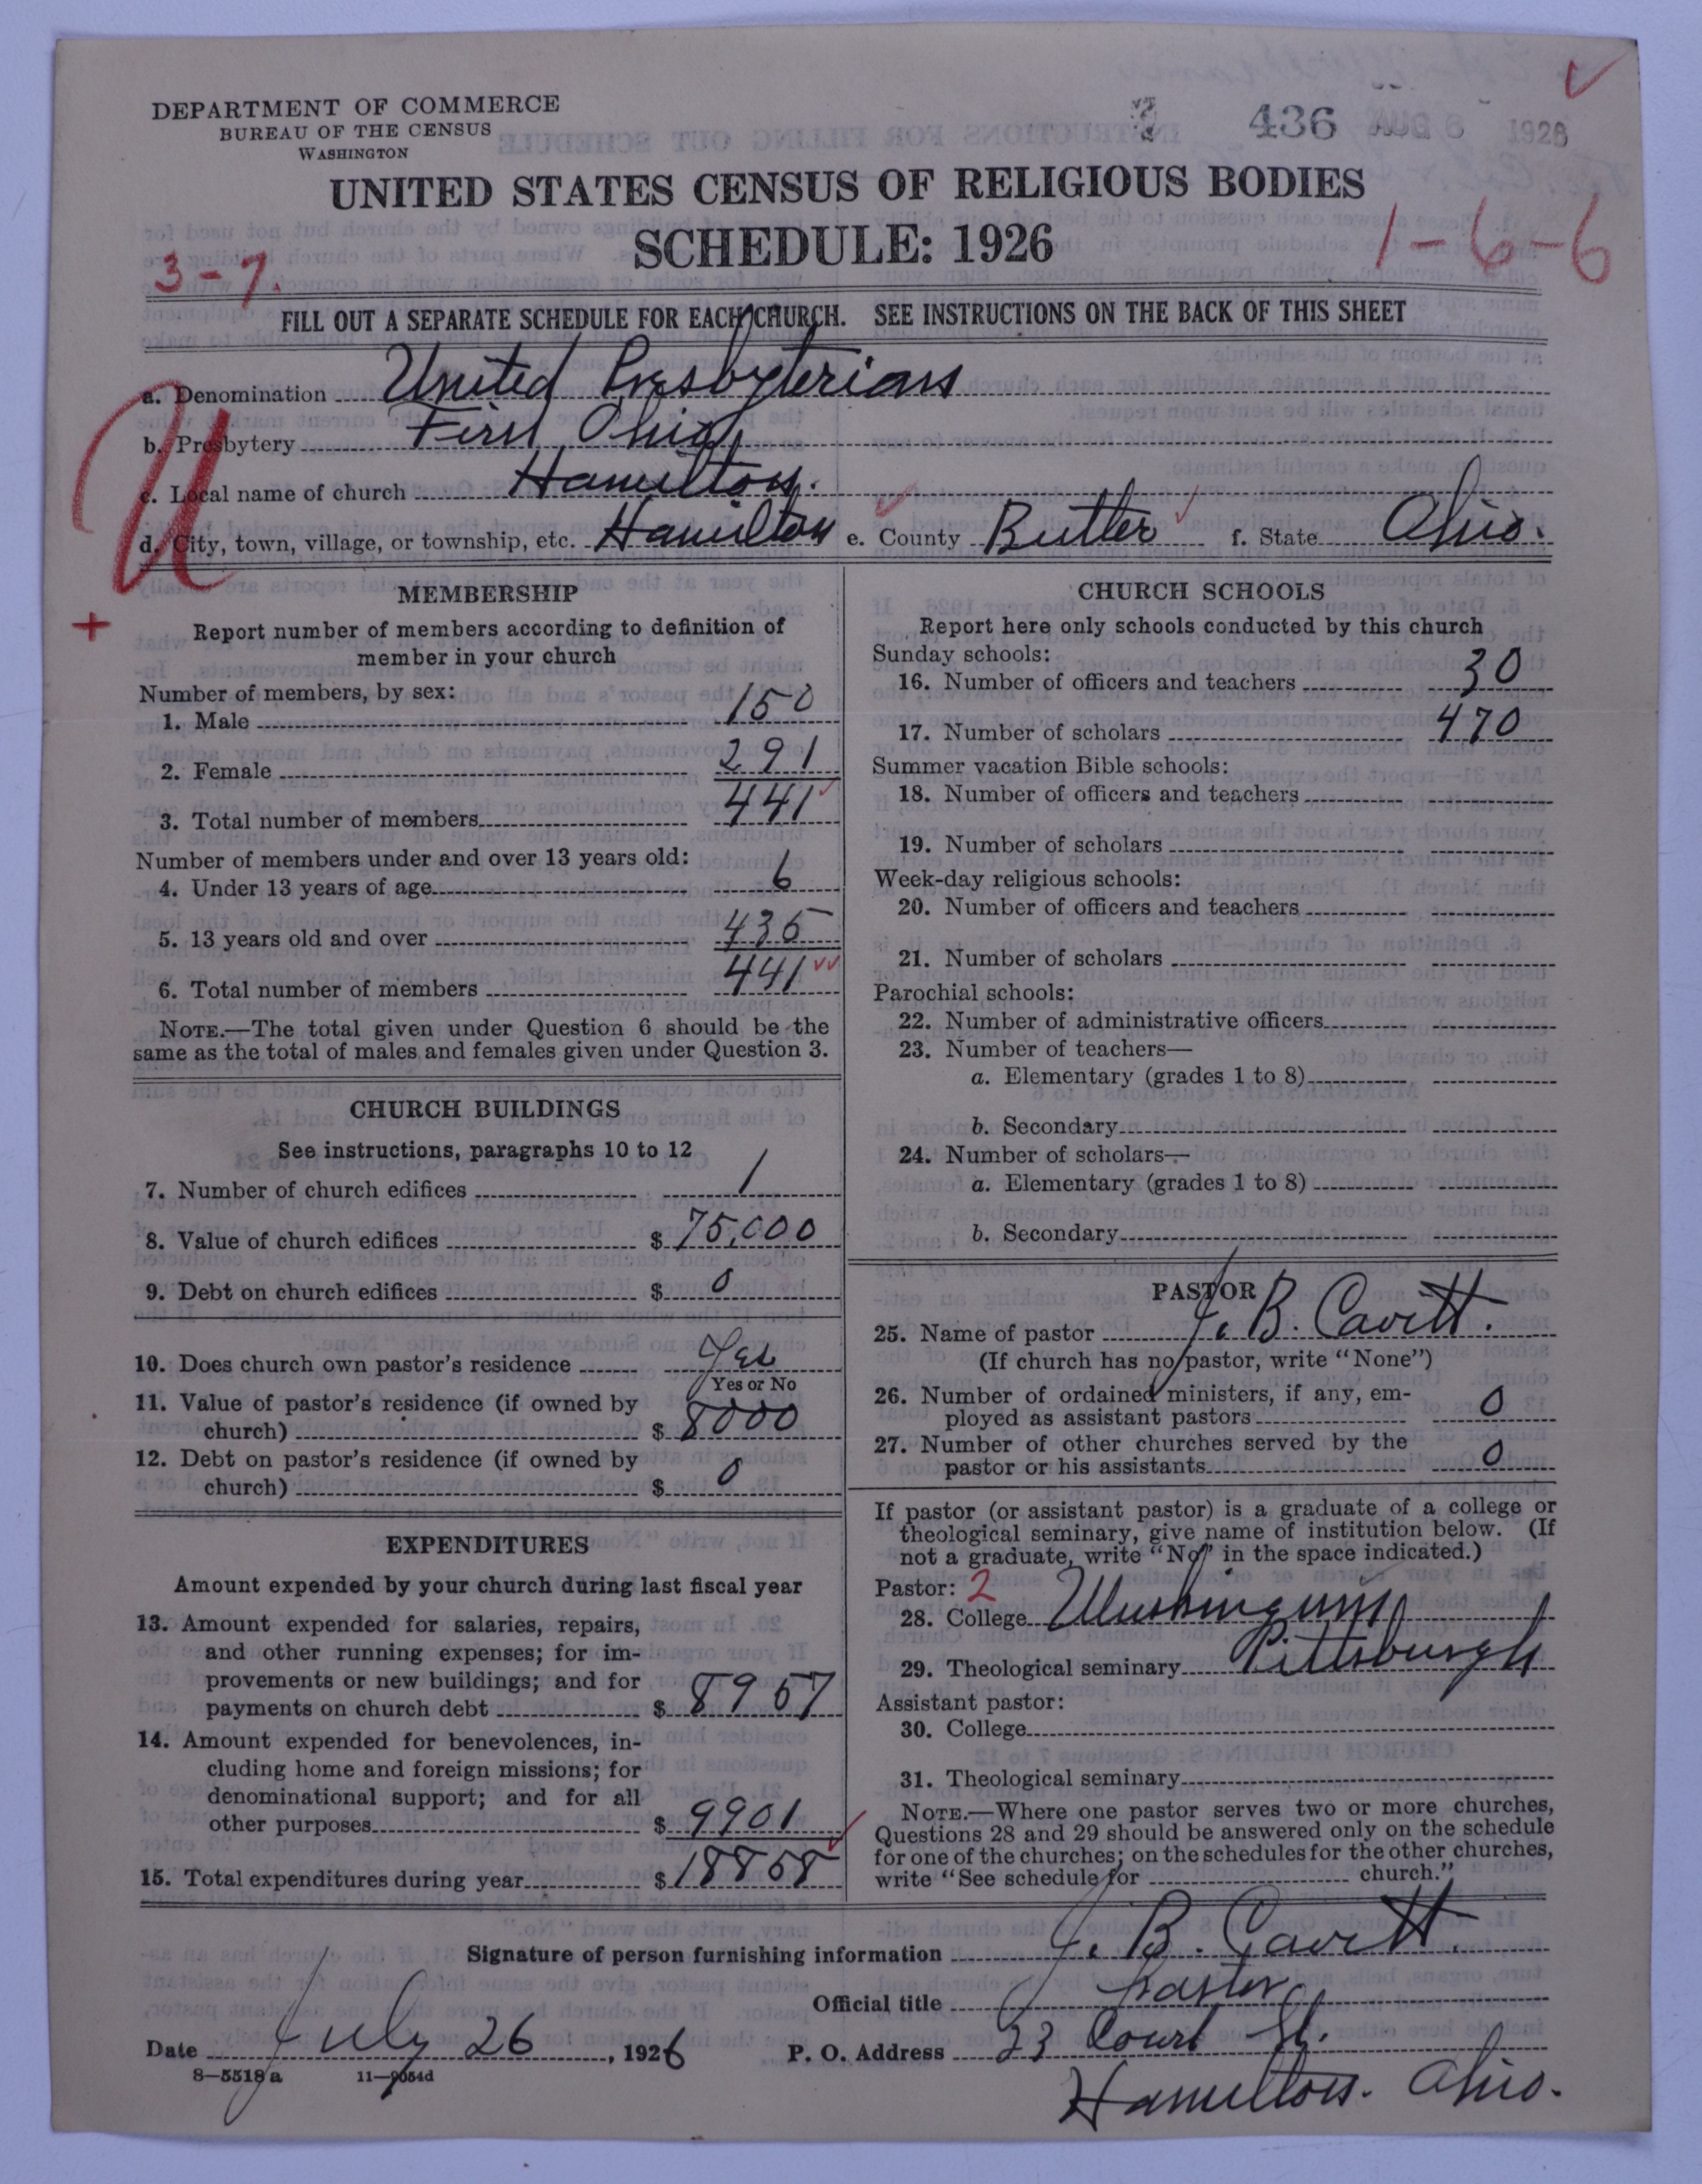 DEPARTMENT OF COMMERCE
BUREAU OF THE CENSUS
WASHINGTON
436 AUG 6 1926
UNITED STATES CENSUS OF RELIGIOUS BODIES
SCHEDULE: 1926
3-7.
1-6-6
FILL OUT A SEPARATE SCHEDULE FOR EACH CHURCH. SEE INSTRUCTIONS ON THE BACK OF THIS SHEET
a. Denomination United Presbyterians
b. Presbytery First Ohio
c. Local name of church Hamilton.
d. City, town, village, or township, etc. Hamilton e. County Butler f. State Ohio.
U
+
MEMBERSHIP
Report number of members according to definition of
member in your church
Number of members, by sex:
1. Male 150
2. Female 291
3. Total number of members 441
Number of members under and over 13 years old:
4. Under 13 years of age 6
5. 13 years old and over 435
6. Total number of members 441
NOTE.—The total given under Question 6 should be the
same as the total of males and females given under Question 3.
CHURCH BUILDINGS
See instructions, paragraphs 10 to 12
7. Number of church edifices 1
8. Value of church edifices $ 75,000
9. Debt on church edifices $ 0
10. Does church own pastor's residence Yes
Yes or No
11. Value of pastor's residence (if owned by
church) $ 8000
12. Debt on pastor's residence (if owned by
church) $ 0
EXPENDITURES
Amount expended by your church during last fiscal year
13. Amount expended for salaries, repairs,
and other running expenses; for im-
provements or new buildings; and for
payments on church debt $ 8957
14. Amount expended for benevolences, in-
cluding home and foreign missions; for
denominational support; and for all
other purposes $ 9901
15. Total expenditures during year $ 18858
CHURCH SCHOOLS
Report here only schools conducted by this church
Sunday schools:
16. Number of officers and teachers 30
17. Number of scholars 470
Summer vacation Bible schools:
18. Number of officers and teachers
19. Number of scholars
Week-day religious schools:
20. Number of officers and teachers
21. Number of scholars
Parochial schools:
22. Number of administrative officers
23. Number of teachers—
a. Elementary (grades 1 to 8)
b. Secondary
24. Number of scholars—
a. Elementary (grades 1 to 8)
b. Secondary
PASTOR
25. Name of pastor J. B. Cavitt.
(If church has no pastor, write "None")
26. Number of ordained ministers, if any, em-
ployed as assistant pastors 0
27. Number of other churches served by the
pastor or his assistants 0
If pastor (or assistant pastor) is a graduate of a college or
theological seminary, give name of institution below. (If
not a graduate, write "No" in the space indicated.)
Pastor: 2
28. College Muskingum
29. Theological seminary Pittsburgh
Assistant pastor:
30. College
31. Theological seminary
NOTE.—Where one pastor serves two or more churches,
Questions 28 and 29 should be answered only on the schedule
for one of the churches; on the schedules for the other churches,
write "See schedule for church."
Signature of person furnishing information J. B. Cavitt.
Official title Pastor
Date July 26, 1926 P. O. Address 23 Court St.
8—5518a 11—9054d
Hamilton. Ohio.